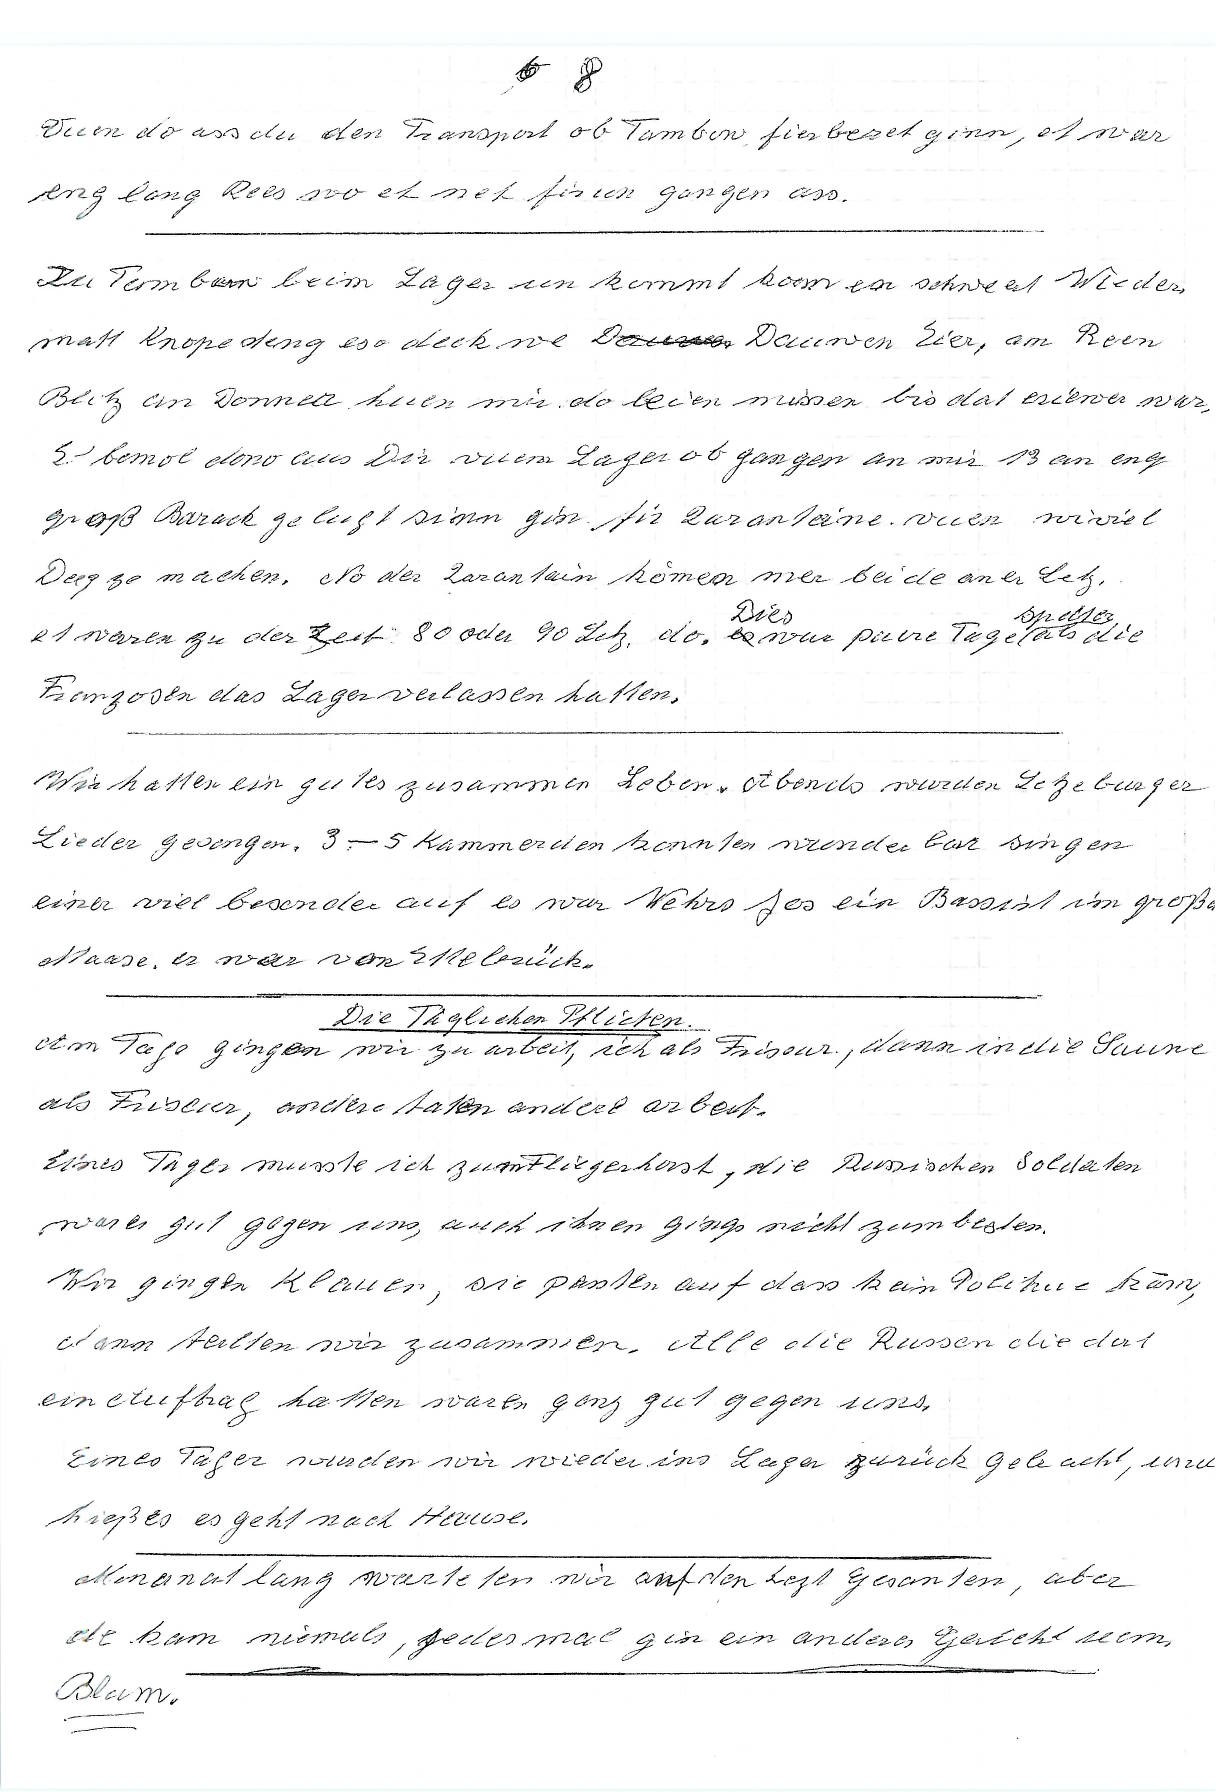 8
Vuun do ass du den Transport ob Tambow fierbereet ginn, et war
eng lang Rees wo et net firun gangen ass.
Zu Tambow beim Lager un kommt koom en schweet Wieder
matt Knopedeng eso deck we Dauwen Eier, am Reen
Blitz an Donner huen mir do leien missen bis dat eriewer war,
bemol dono aus Dir vuem Lager ob gangen an mir 13 an eng
groß Barack geluegt sinn gin fir Qarantaine vuen wiviel
Deeg ze machen. No der Qarantain kömen mer bei de aner Letz.
et waren zu der Zeit 80 oder 90 Letz. do. Dies war paare Tage später als die
Franzosen das Lager verlassen hatten.
Wir hatten ein gutes zusammen Leben. Abends wurden Letzeburger
Lieder gesongen. 3–5 Kammerden konnten wunderbar singen
einer viel besonder auf es war Wehrs Jos ein Bassist im große
Maase. er war von Ettelbrück.
Die Täglichen Pflichten.
Am Tage gingen wir zu arbeit, ich als Friseur, dann in die Saune
als Friseur, andere taten andere arbeit.
Eines Tages musste ich zum Fliegerhorst, die Russischen Soldaten
waren gut gegen uns, auch ihnen gings nicht zum besten.
Wir gingen Klauen, sie pasten auf dass kein Politruc käm,
dann teilten wir zusammen. Alle die Russen die dat
ein Auftrag hatten waren ganz gut gegen uns.
Eines Tages wurden wir wieder ins Lager zurück gebracht, und
hieß es es geht nach Hause.
Monanat lang warteten wir auf den Lezt Gesanten, aber
de kam niemals, jedesmal gin ein anderes Gerücht um.
Blum.